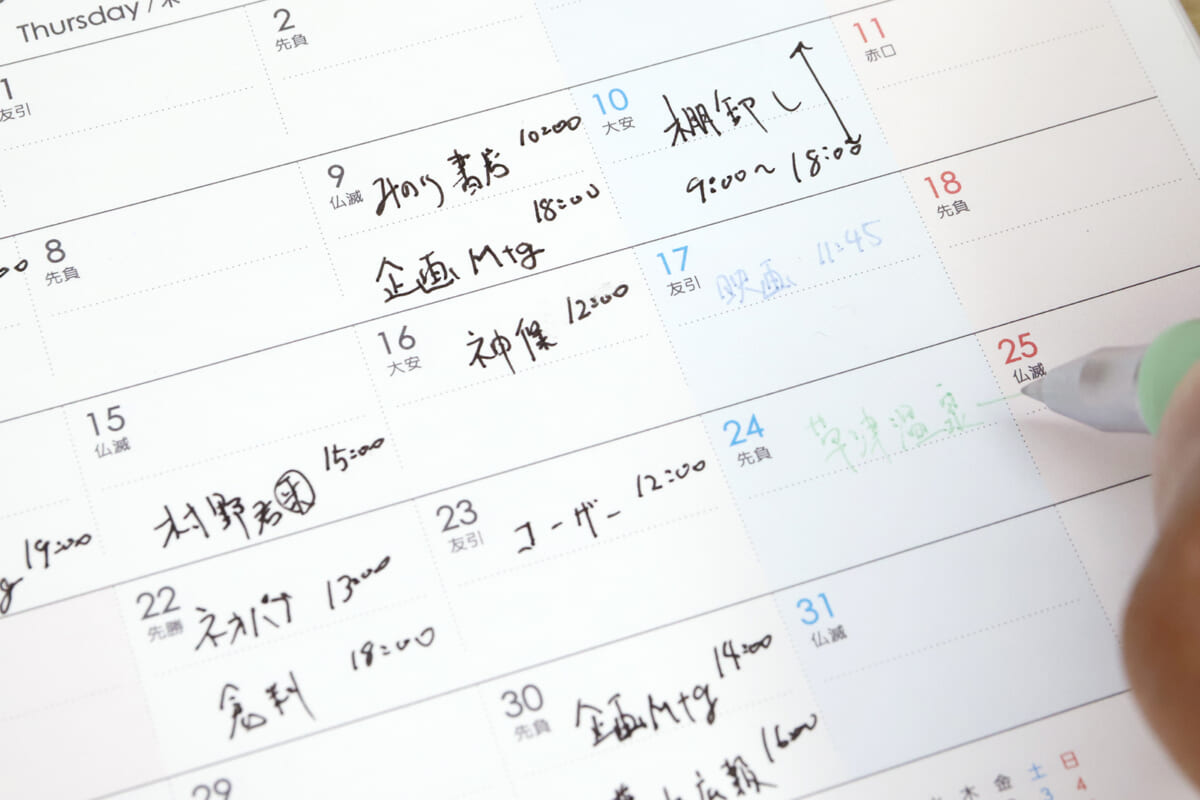 Thursday / 木
1
友引
2
先負
8
先負
9
仏滅
みのり書店 10:00
企画Mtg 18:00
10
大安
棚卸し
9:00〜18:00
11
赤口
15
仏滅
村野君 15:00
16
大安
神保 12:00
17
友引
映画 11:45
18
先負
19:00
22
先勝
ネオパナ 13:00
18:00
23
友引
コーザー 12:00
24
先負
草津温泉
25
仏滅
29
30
先負
企画Mtg 14:00
広報 16:00
31
仏滅
木 金 土 日
3 4